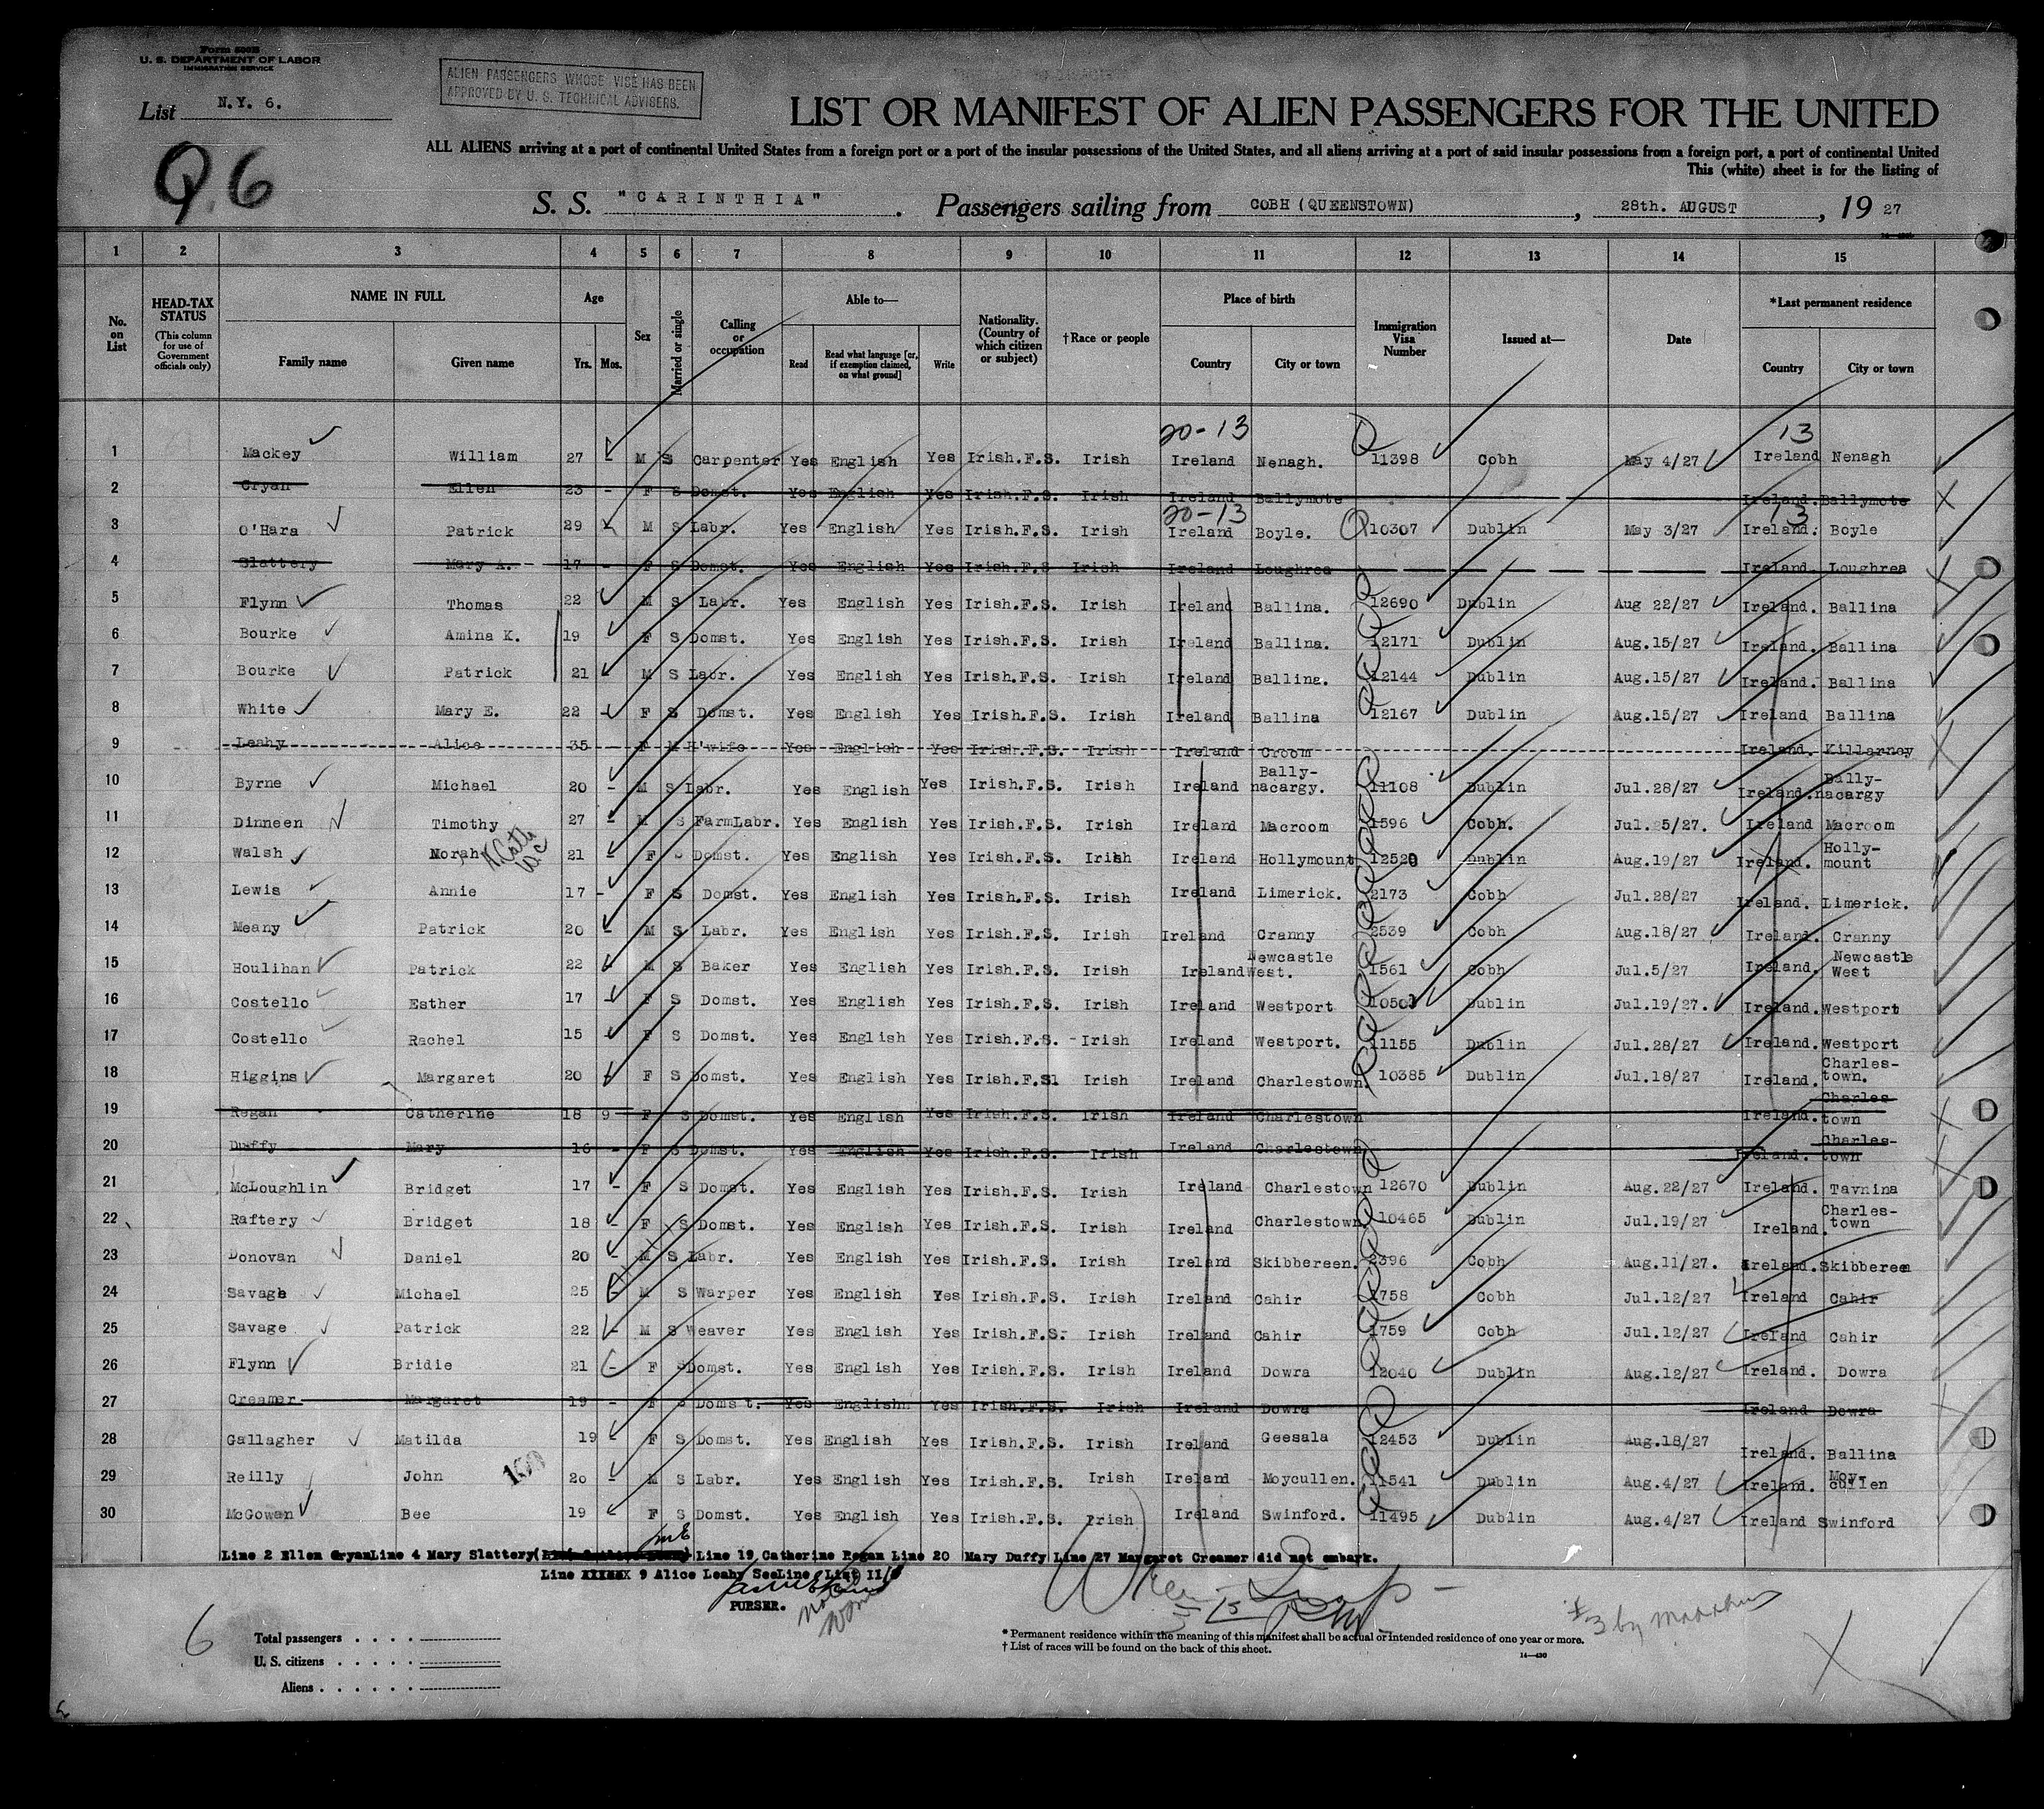 Form 500B
U. S. DEPARTMENT OF LABOR
IMMIGRATION SERVICE
List N.Y. 6.
ALIEN PASSENGERS WHOSE VISE HAS BEEN
APPROVED BY U. S. TECHNICAL ADVISERS.
Q 6
LIST OR MANIFEST OF ALIEN PASSENGERS FOR THE UNITED
ALL ALIENS arriving at a port of continental United States from a foreign port or a port of the insular possessions of the United States, and all aliens arriving at a port of said insular possessions from a foreign port, a port of continental United
This (white) sheet is for the listing of
S. S. "CARINTHIA" . Passengers sailing from COBH (QUEENSTOWN) , 28th. AUGUST , 19 27
1 2 3 4 5 6 7 8 9 10 11 12 13 14 15
No. on List
HEAD-TAX STATUS (This column for use of Government officials only)
NAME IN FULL Family name Given name
Age Yrs. Mos.
Sex
Married or single
Calling or occupation
Able to— Read Read what language [or, if exemption claimed, on what ground] Write
Nationality. (Country of which citizen or subject)
†Race or people
Place of birth Country City or town
Immigration Visa Number
Issued at—
Date
*Last permanent residence Country City or town
20-13 13
1 Mackey William 27 - M S Carpenter Yes English Yes Irish.F.S. Irish Ireland Nenagh. 11398 Cobh May 4/27 Ireland Nenagh
2 Cryan Ellen 23 - F S Domst. Yes English Yes Irish.F.S. Irish Ireland Ballymote Ireland. Ballymote
20-13 13
3 O'Hara Patrick 29 - M S Labr. Yes English Yes Irish.F.S. Irish Ireland Boyle. 10307 Dublin May 3/27 Ireland. Boyle
4 Slattery Mary A. 17 - F S Domst. Yes English Yes Irish.F.S Irish Ireland Loughrea Ireland. Loughrea
5 Flynn Thomas 22 M S Labr. Yes English Yes Irish.F.S. Irish Ireland Ballina. 12690 Dublin Aug 22/27 Ireland. Ballina
6 Bourke Amina K. 19 F S Domst. Yes English Yes Irish.F.S. Irish Ireland Ballina. 12171 Dublin Aug.15/27 Ireland. Ballina
7 Bourke Patrick 21 M S Labr. Yes English Yes Irish.F.S. Irish Ireland Ballina. 12144 Dublin Aug.15/27 Ireland. Ballina
8 White Mary E. 22 - F S Domst. Yes English Yes Irish.F.S. Irish Ireland Ballina 12167 Dublin Aug.15/27 Ireland Ballina
9 Leahy Alice 35 - F M H'wife Yes English Yes Irish.F.S. Irish Ireland Croom Ireland. Killarney
10 Byrne Michael 20 - M S Labr. Yes English Yes Irish.F.S. Irish Ireland Bally-nacargy. 11108 Dublin Jul.28/27 Ireland. Bally-nacargy
11 Dinneen Timothy 27 - M S FarmLabr. Yes English Yes Irish.F.S. Irish Ireland Macroom 1596 Cobh. Jul.25/27. Ireland Macroom
12 Walsh Norah 21 - F S Domst. Yes English Yes Irish.F.S. Irish Ireland Hollymount 12520 Dublin Aug.19/27 Ireland. Holly-mount
13 Lewis Annie 17 - F S Domst. Yes English Yes Irish.F.S. Irish Ireland Limerick. 2173 Cobh Jul.28/27 Ireland. Limerick.
14 Meany Patrick 20 - M S Labr. Yes English Yes Irish.F.S. Irish Ireland Cranny 2539 Cobh Aug.18/27 Ireland. Cranny
15 Houlihan Patrick 22 - M S Baker Yes English Yes Irish.F.S. Irish Ireland Newcastle West. 1561 Cobh Jul.5/27 Ireland. Newcastle West
16 Costello Esther 17 - F S Domst. Yes English Yes Irish.F.S. Irish Ireland Westport 10501 Dublin Jul.19/27. Ireland. Westport
17 Costello Rachel 15 F S Domst. Yes English Yes Irish.F.S. -Irish Ireland Westport. 11155 Dublin Jul.28/27 Ireland. Westport
18 Higgins Margaret 20 - F S Domst. Yes English Yes Irish.F.Sl Irish Ireland Charlestown. 10385 Dublin Jul.18/27 Ireland. Charles-town.
19 Regan Catherine 18 9 F S Domst. Yes English Yes Irish.F.S. Irish Ireland Charlestown Ireland. Charles town
20 Duffy Mary 16 - F S Domst. Yes English Yes Irish.F.S. Irish Ireland Charlestown Ireland. Charles-town
21 McLoughlin Bridget 17 - F S Domst. Yes English Yes Irish.F.S. Irish Ireland Charlestown 12670 Dublin Aug.22/27 Ireland. Tavnina
22 Raftery Bridget 18 - F S Domst. Yes English Yes Irish.F.S. Irish Ireland Charlestown 10465 Dublin Jul.19/27 Ireland. Charles-town
23 Donovan Daniel 20 - M S Labr. Yes English Yes Irish.F.S. Irish Ireland Skibbereen. 2396 Cobh Aug.11/27. Ireland. Skibbereen
24 Savage Michael 25 - M S Warper Yes English Yes Irish.F.S. Irish Ireland Cahir 1758 Cobh Jul.12/27 Ireland Cahir
25 Savage Patrick 22 - M S Weaver Yes English Yes Irish.F.S. Irish Ireland Cahir 1759 Cobh Jul.12/27 Ireland Cahir
26 Flynn Bridie 21 - F S Domst. Yes English Yes Irish.F.S. Irish Ireland Dowra 12040 Dublin Aug.12/27 Ireland. Dowra
27 Creamer Margaret 19 - F S Domst. Yes English Yes Irish.F.S. Irish Ireland Dowra Ireland Dowra
28 Gallagher Matilda 19 - F S Domst. Yes English Yes Irish.F.S. Irish Ireland Geesala 12453 Dublin Aug.18/27 Ireland. Ballina
29 Reilly John 20 - M S Labr. Yes English Yes Irish.F.S. Irish Ireland Moycullen. 11541 Dublin Aug.4/27 Ireland. Moy-cullen
30 McGowan Bee 19 F S Domst. Yes English Yes Irish.F.S. Irish Ireland Swinford. 11495 Dublin Aug.4/27 Ireland Swinford
Line 2 Ellen Cryan Line 4 Mary Slattery Line 19 Catherine Regan Line 20 Mary Duffy Line 27 Margaret Creamer did not embark.
Line 9 Alice Leahy See Line List 11
PURSER.
6
Total passengers . . . .
U. S. citizens . . . . .
Aliens . . . . . .
* Permanent residence within the meaning of this manifest shall be actual or intended residence of one year or more.
† List of races will be found on the back of this sheet.
14—430